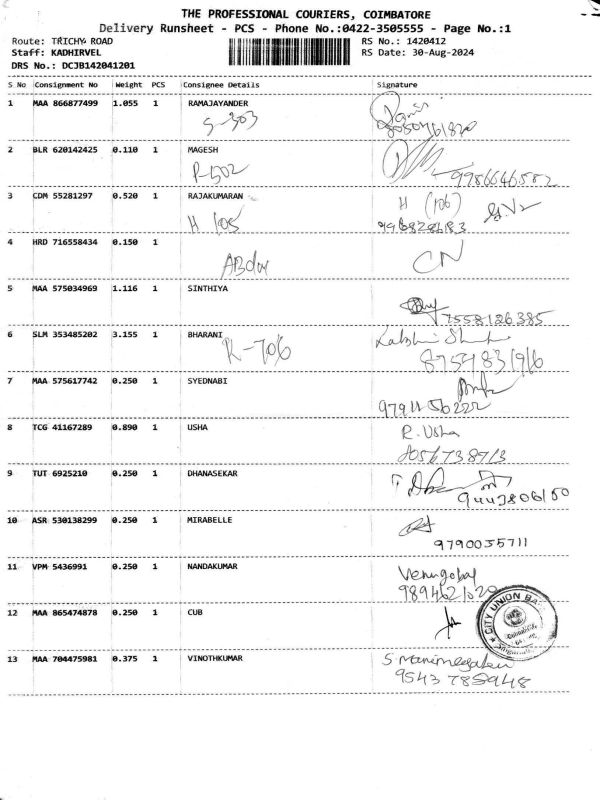 THE PROFESSIONAL COURIERS, COIMBATORE
Delivery Runsheet - PCS - Phone No.:0422-3505555 - Page No.:1
Route: TRICHY ROAD RS No.: 1420412
Staff: KADHIRVEL RS Date: 30-Aug-2024
DRS No.: DCJB142041201
S No Consignment No Weight PCS Consignee Details Signature
1 MAA 866877499 1.055 1 RAMAJAYANDER
S-303
2 BLR 620142425 0.110 1 MAGESH
P-502 9986646582
3 CDM 55281297 0.520 1 RAJAKUMARAN H (106)
H 105
4 HRD 716558434 0.150 1
CN
5 MAA 575034969 1.116 1 SINTHIYA
7558126385
6 SLM 353485202 3.155 1 BHARANI
R-706 8754831916
7 MAA 575617742 0.250 1 SYEDNABI
8 TCG 41167289 0.890 1 USHA R. Usha
8056738713
9 TUT 6925210 0.250 1 DHANASEKAR
9442806150
10 ASR 530138299 0.250 1 MIRABELLE
9790055711
11 VPM 5436991 0.250 1 NANDAKUMAR Venugobal
9894621020
12 MAA 865474878 0.250 1 CUB
CITY UNION BA
13 MAA 704475981 0.375 1 VINOTHKUMAR
9543785948